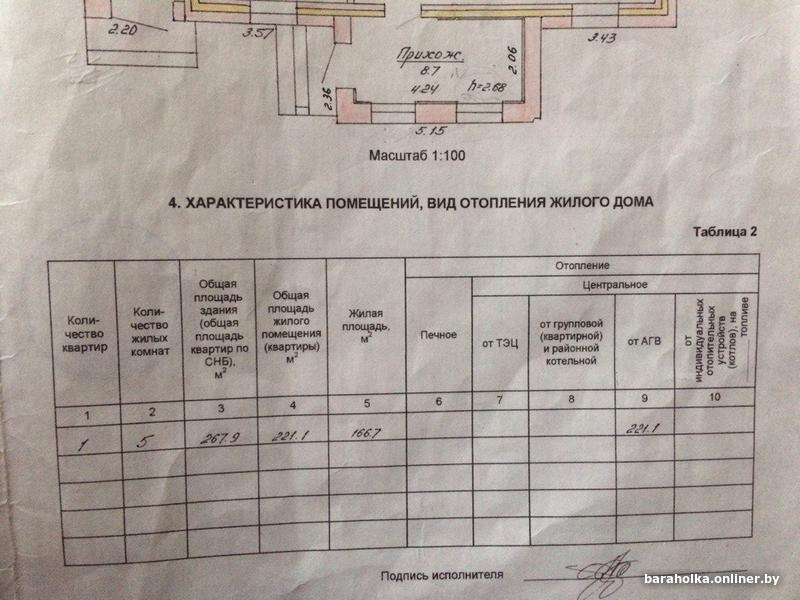 2.20
3.57
Прихож.
8.7
4.24
h=2.68
2.06
2.36
3.43
5.15
Масштаб 1:100
4. ХАРАКТЕРИСТИКА ПОМЕЩЕНИЙ, ВИД ОТОПЛЕНИЯ ЖИЛОГО ДОМА
Таблица 2
Коли-
чество
квартир
Коли-
чество
жилых
комнат
Общая
площадь
здания
(общая
площадь
квартир по
СНБ),
м²
Общая
площадь
жилого
помещения
(квартиры)
м²
Жилая
площадь,
м²
Отопление
Печное
Центральное
от ТЭЦ
от групповой
(квартирной)
и районной
котельной
от АГВ
от
индивидуальных
отопительных
устройств
(котлов), на
топливе
1 2 3 4 5 6 7 8 9 10
1 5 267.9 221.1 166.7 221.1
Подпись исполнителя
baraholka.onliner.by